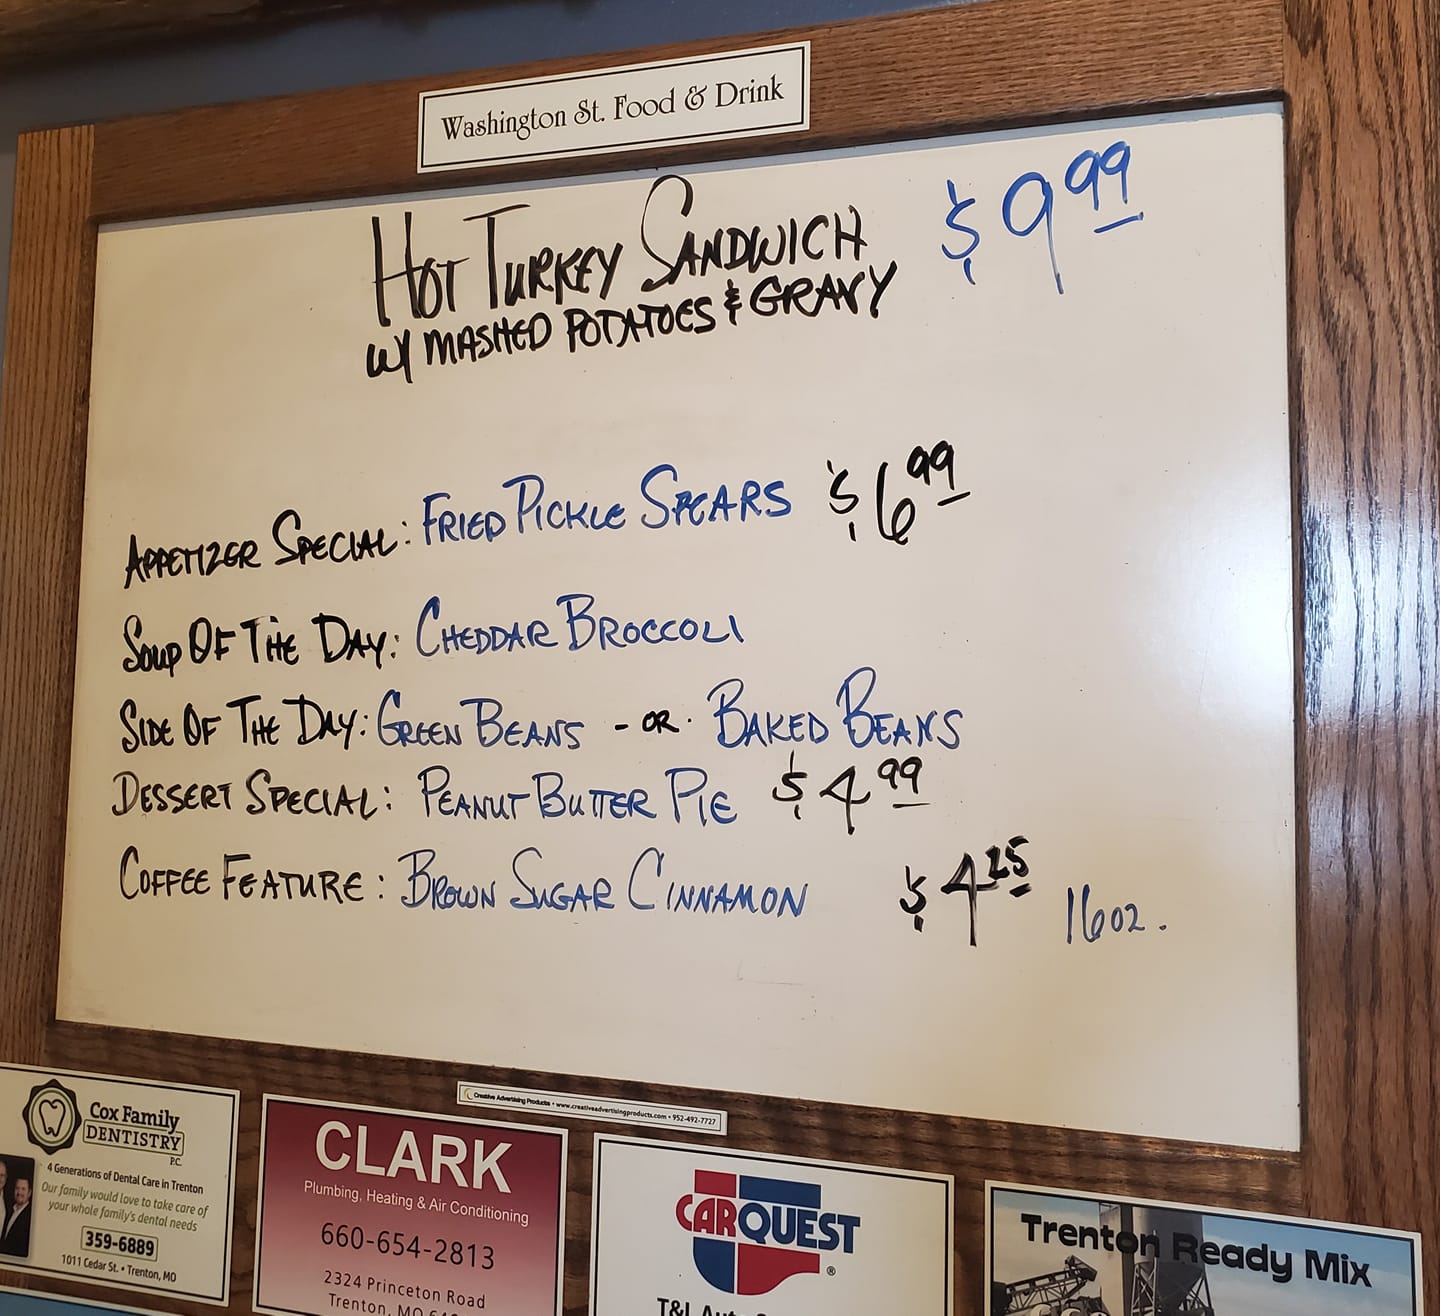 Washington St. Food & Drink
HOT TURKEY SANDWICH $9.99
W/ MASHED POTATOES & GRAVY
APPETIZER SPECIAL: FRIED PICKLE SPEARS $6.99
SOUP OF THE DAY: CHEDDAR BROCCOLI
SIDE OF THE DAY: GREEN BEANS - OR - BAKED BEANS
DESSERT SPECIAL: PEANUT BUTTER PIE $4.99
COFFEE FEATURE: BROWN SUGAR CINNAMON $4.25 16oz.
Creative Advertising Products • www.creativeadvertisingproducts.com • 952-492-7727
Cox Family
DENTISTRY
P.C.
4 Generations of Dental Care in Trenton
Our family would love to take care of
your whole family's dental needs
359-6889
1011 Cedar St. • Trenton, MO
CLARK
Plumbing, Heating & Air Conditioning
660-654-2813
2324 Princeton Road
Trenton, MO
CARQUEST
®
T&L Auto
Trenton Ready Mix